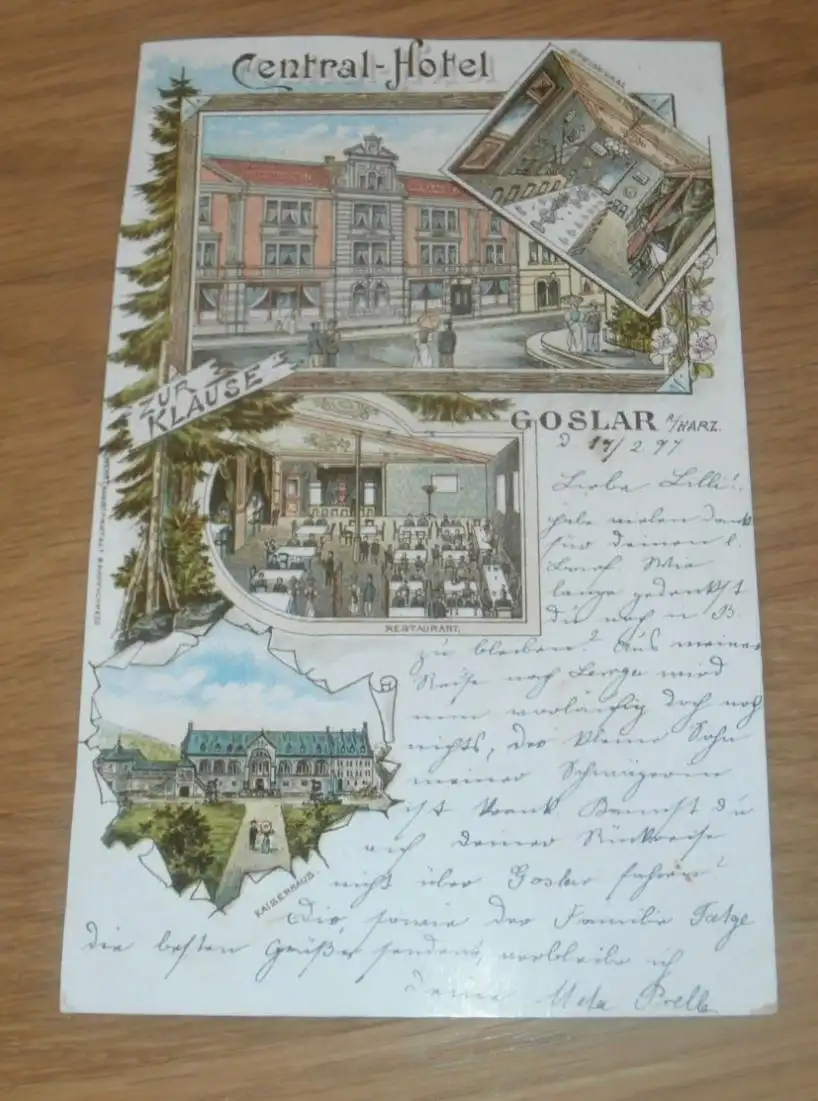 Central-Hotel
SPEISESAAL
ZUR
KLAUSE
GOSLAR A/HARZ.
d 17/2 97
Liebe Lilli!
habe vielen Dank
für deinen l.
Brief Wie
lange gedenkst
du noch in B.
zu bleiben? Aus meiner
RESTAURANT.
Reise nach wird
nun vorläufig doch noch
nichts, der kleine Sohn
meiner Schwägerin
ist krank Kommst du
auf deiner Rückreise
nicht über Goslar fahren?
KAISERHAUS.
Dir, sowie der Familie
die besten Grüße sendend, verbleibe ich
deine Meta Prelle